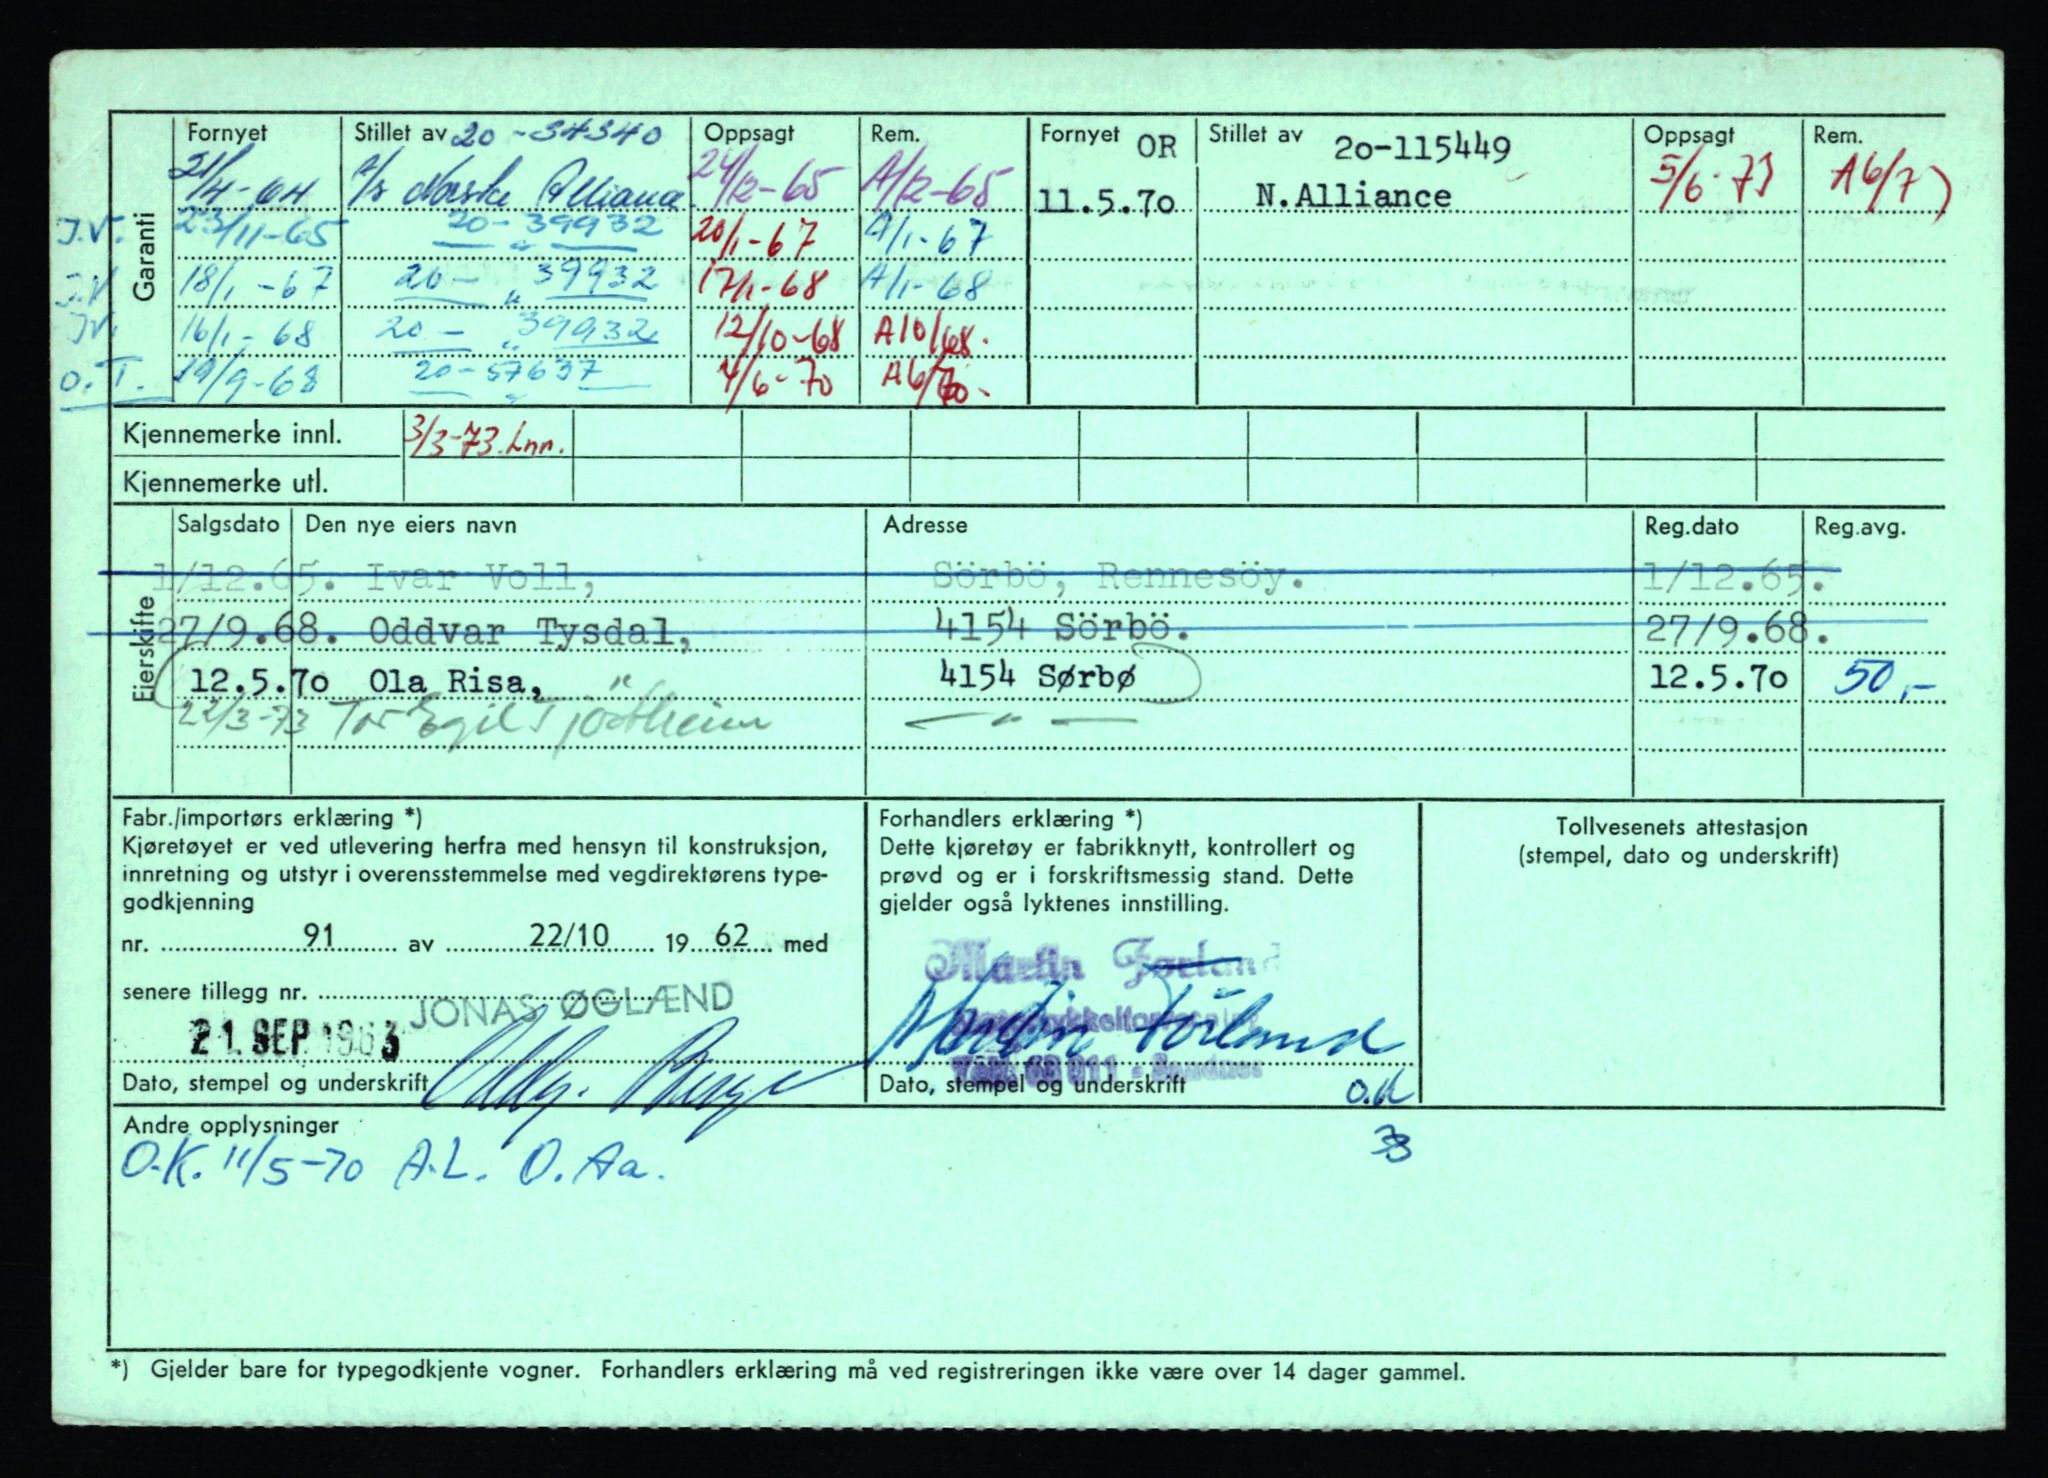 Garanti
Fornyet Stillet av 20-34340 Oppsagt Rem. Fornyet OR Stillet av 20-115449 Oppsagt Rem.
21/4-64 A/S Norske Alliance 24/12-65 A/12-65 11.5.70 N.Alliance 5/6-73 A6/7)
J.V. 23/11-65 20-39932 20/1-67 A/1-67
J.V 18/1-67 20- " 39932 17/1-68 A/1-68
J.V. 16/1-68 20- " 39932 12/10-68 A10/68.
O.T. 19/9-68 20-57637 4/6-70 A6/70-
Kjennemerke innl. 3/3-73. Lnn.
Kjennemerke utl.
Eierskifte
Salgsdato Den nye eiers navn Adresse Reg.dato Reg.avg.
1/12.65. Ivar Voll, Sörbö, Rennesöy. 1/12.65.
27/9.68. Oddvar Tysdal, 4154 Sörbö. 27/9.68.
12.5.70 Ola Risa, 4154 Sørbø 12.5.70 50,-
22/3-73 Tor Egil Tjörtheim — " —
Fabr./importørs erklæring *)
Kjøretøyet er ved utlevering herfra med hensyn til konstruksjon,
innretning og utstyr i overensstemmelse med vegdirektørens type-
godkjenning
nr. 91 av 22/10 1962 med
senere tillegg nr.
JONAS ØGLÆND
21. SEP 1963
Dato, stempel og underskrift
Forhandlers erklæring *)
Dette kjøretøy er fabrikknytt, kontrollert og
prøvd og er i forskriftsmessig stand. Dette
gjelder også lyktenes innstilling.
Martin Førland
Martin Förland
Sandnes
Dato, stempel og underskrift O.K
Tollvesenets attestasjon
(stempel, dato og underskrift)
Andre opplysninger
O.K. 11/5-70 A.L. O.Aa.
*) Gjelder bare for typegodkjente vogner. Forhandlers erklæring må ved registreringen ikke være over 14 dager gammel.